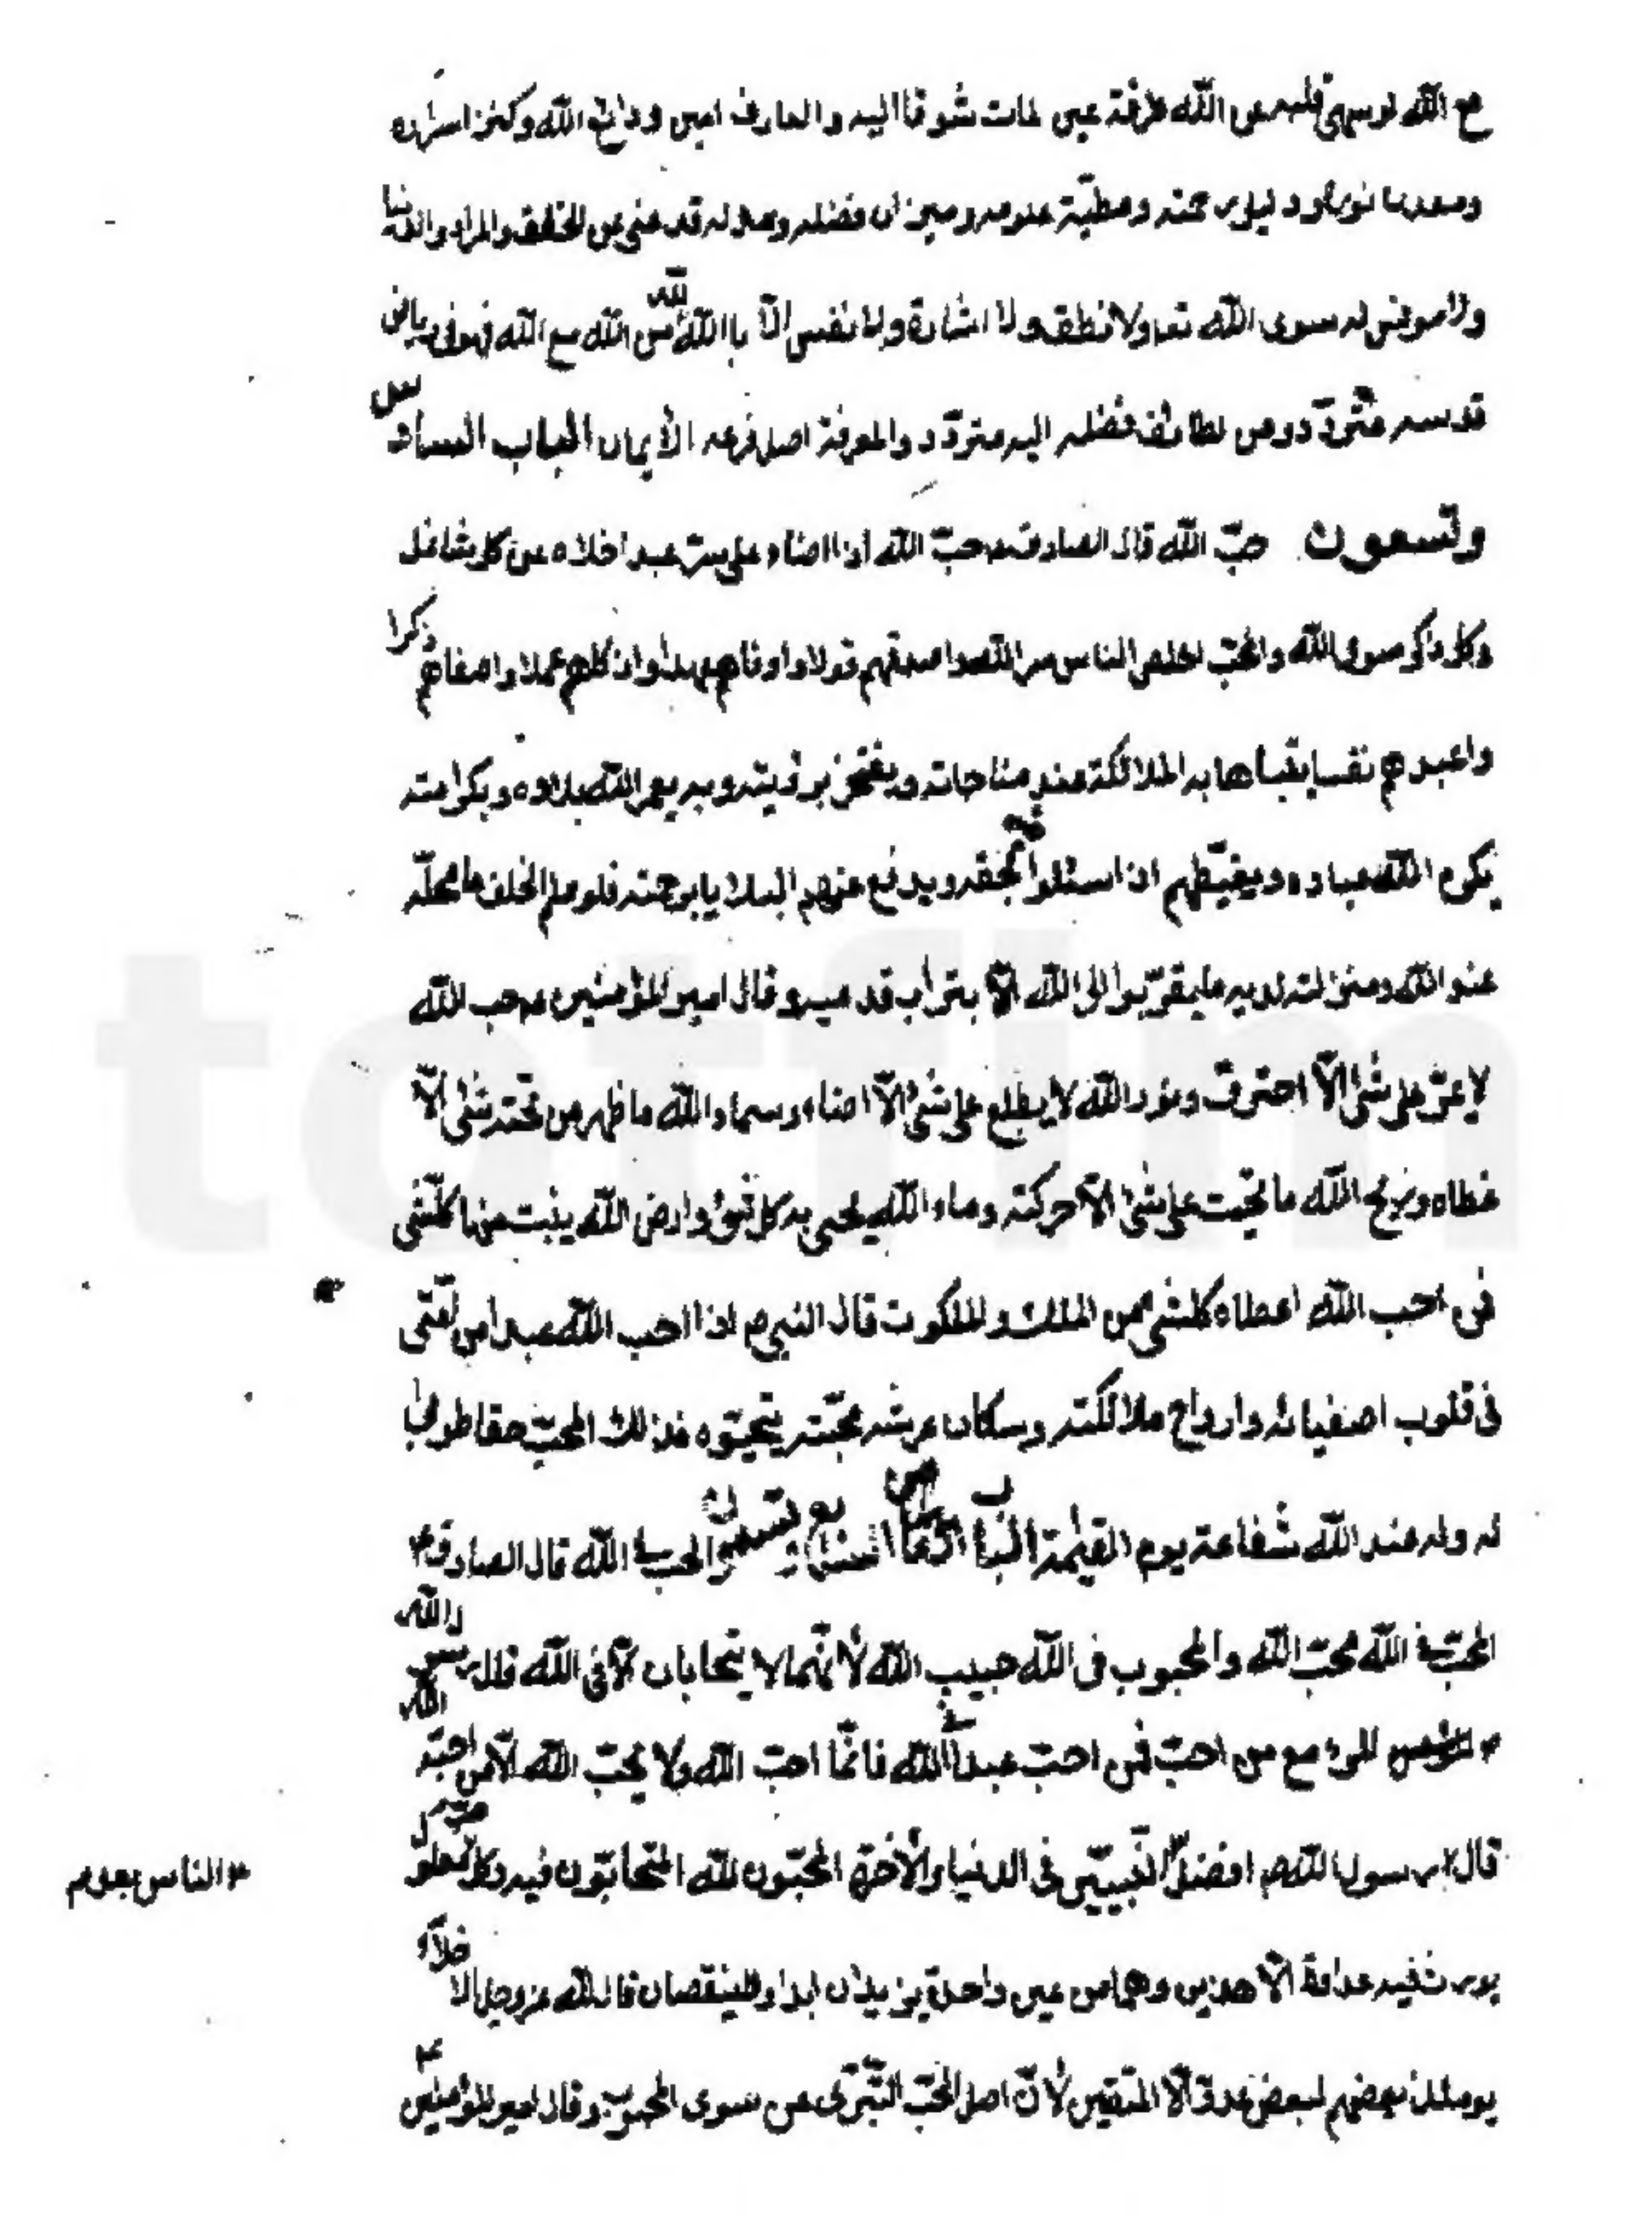 مع الله لو سهى قلبه عن الله طرفة عين لمات شوقا اليه والعارف امين ودائع الله وكنز اسراره
ومعدن نوره ودليل رحمته ومطيّة علومه وميزان فضله وعدله قد غنى عن الخلق والمراد والدنيا
ولا مونس له سوى الله تعا ولا نطق ولا اشارة ولا نفس الّا بالله لله من الله مع الله فهو فى رياض
قدسه متردّد ومن لطائف فضله اليه متزوّد والمعرفة اصل فرعه الأيمان الباب السادس
وتسعون حبّ الله قال الصادق ع حبّ الله اذا اضاء على سرّ عبد اخلاه عن كل شاغل
وكل ذاكر سوى الله والمحبّ اخلص الناس سر الله واصدقهم قولا واوفاهم عهدا واذكاهم عملا واصفاهم ذكرا
واعبدهم نفسا يتباها به الملائكة عند مناجاته ويفتخر برؤيته وبه يعمر الله بلاده وبكرامته
يكرم الله عباده ويعطيهم اذا سئلوا بحقه ويدفع عنهم البلايا برحمته فلو علم الخلق ما محلّه
عند الله ومنزلته لديه ما يتقرّبوا الى الله الّا بتراب قدميه وقال امير المؤمنين ع حب الله
لا يمرّ على شئ الّا احترق ونور الله لا يطلع على شئ الّا اضاء وسماء الله ما ظهر من تحته شئ الّا
غطاه وريح الله ما تهبّ على شئ الّا حركته وماء الله يحيى به كل شئ وارض الله ينبت منها كلشئ
فمن احب الله اعطاه كلشئ من الملك والملكوت قال النبي ص اذا احب الله عبدا من امّتى
فى قلوب اصفيائه وارواح ملائكته وسكان عرشه محبّته ليحبّوه فذلك المحبّ حقا طوبى
له وله عند الله شفاعة يوم القيٰمة الباب وتسعون الحب فى الله قال الصادق ع
المحبّ فى الله محبّ الله والمحبوب فى الله حبيب الله لأنّهما لا يتحابان الّا فى الله قال رسول الله
ص المرء مع من احبّ فمن احبّ عبدا فى الله فانّما احبّ الله ولا يحبّ الله الّا من احبّه
قال رسول الله ص افضل النّبييّن فى الدنيا والأخرة المحبّون لله المتحابّون فيه وكل حبّ معلول
* الناس بعدهم
يورث فيه عداوة الّا هذين وهما من عين واحدة يزيدان ابدا ولا ينقصان قال الله عز وجل الاخلاء
يومئذ بعضهم لبعض عدوّ الّا المتقين لأنّ اصل الحبّ التّبرّى عن سوى المحبوب وقال امير المؤمنين ع